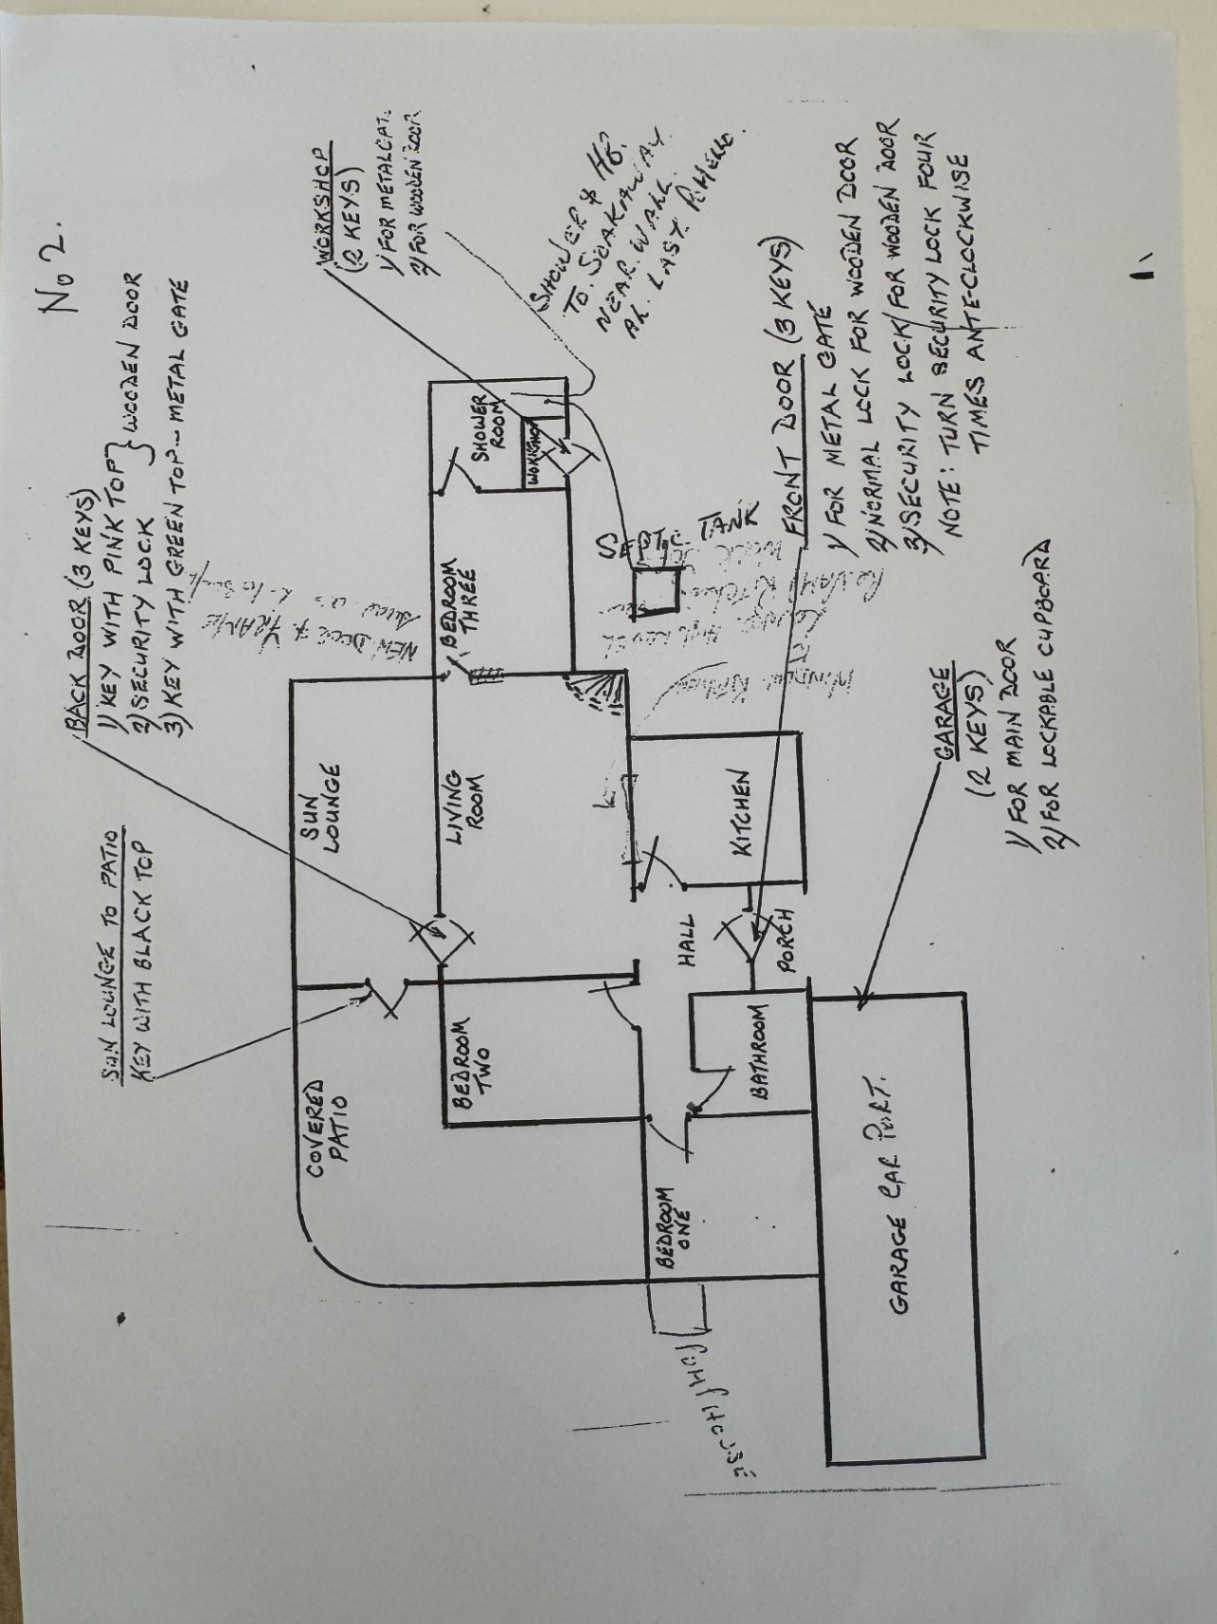 No 2.
BACK DOOR (3 KEYS)
1) KEY WITH PINK TOP } WOODEN DOOR
2) SECURITY LOCK
3) KEY WITH GREEN TOP - METAL GATE
SUN LOUNGE TO PATIO
KEY WITH BLACK TOP
WORKSHOP
(2 KEYS)
1/ FOR METAL GAT.
2/ FOR WOODEN DOOR
SHOWER & HB.
TO. SOAKAWAY
NEAR. WALL.
AL. LAST.
COVERED
PATIO
SUN
LOUNGE
NEW DOOR & FRAME
BEDROOM
TWO
LIVING
ROOM
BEDROOM
THREE
SHOWER
ROOM
WORKSHOP
SEPTIC TANK
BEDROOM
ONE
HALL
KITCHEN
BATHROOM
PORCH
FRONT DOOR (3 KEYS)
1/ FOR METAL GATE
2/ NORMAL LOCK FOR WOODEN DOOR
3/ SECURITY LOCK/FOR WOODEN DOOR
NOTE: TURN SECURITY LOCK FOUR
TIMES ANTE-CLOCKWISE
GARAGE CAR PORT.
GARAGE
(2 KEYS)
1/ FOR MAIN DOOR
2/ FOR LOCKABLE CUPBOARD